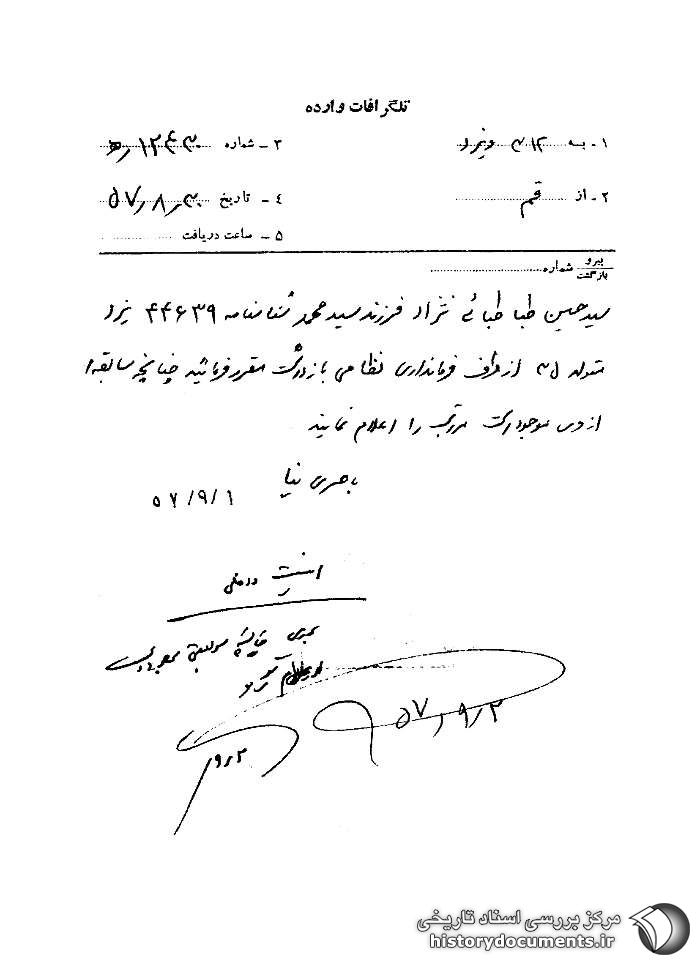 تلگرافات وارده
۱ - به ۳۱۲ و یزد
۳ - شماره
۲ - از قم
۴ - تاریخ ۵۷٫۸٫۳۰
۵ - ساعت دریافت
پیرو
بازگشت
شماره
سیدحسین طباطبائی نژاد فرزند سیدمحمد شناسنامه ۴۴۶۳۹ یزد
متولد ۳۵ از طرف فرمانداری نظامی بازداشت مقرر فرمائید چنانچه سابقه‌ای
از وی موجود است مراتب را اعلام نمایند
۵۷/۹/۱
امنیت داخلی
۵۷٫۹٫۲
مرکز بررسی اسناد تاریخی
historydocuments.ir